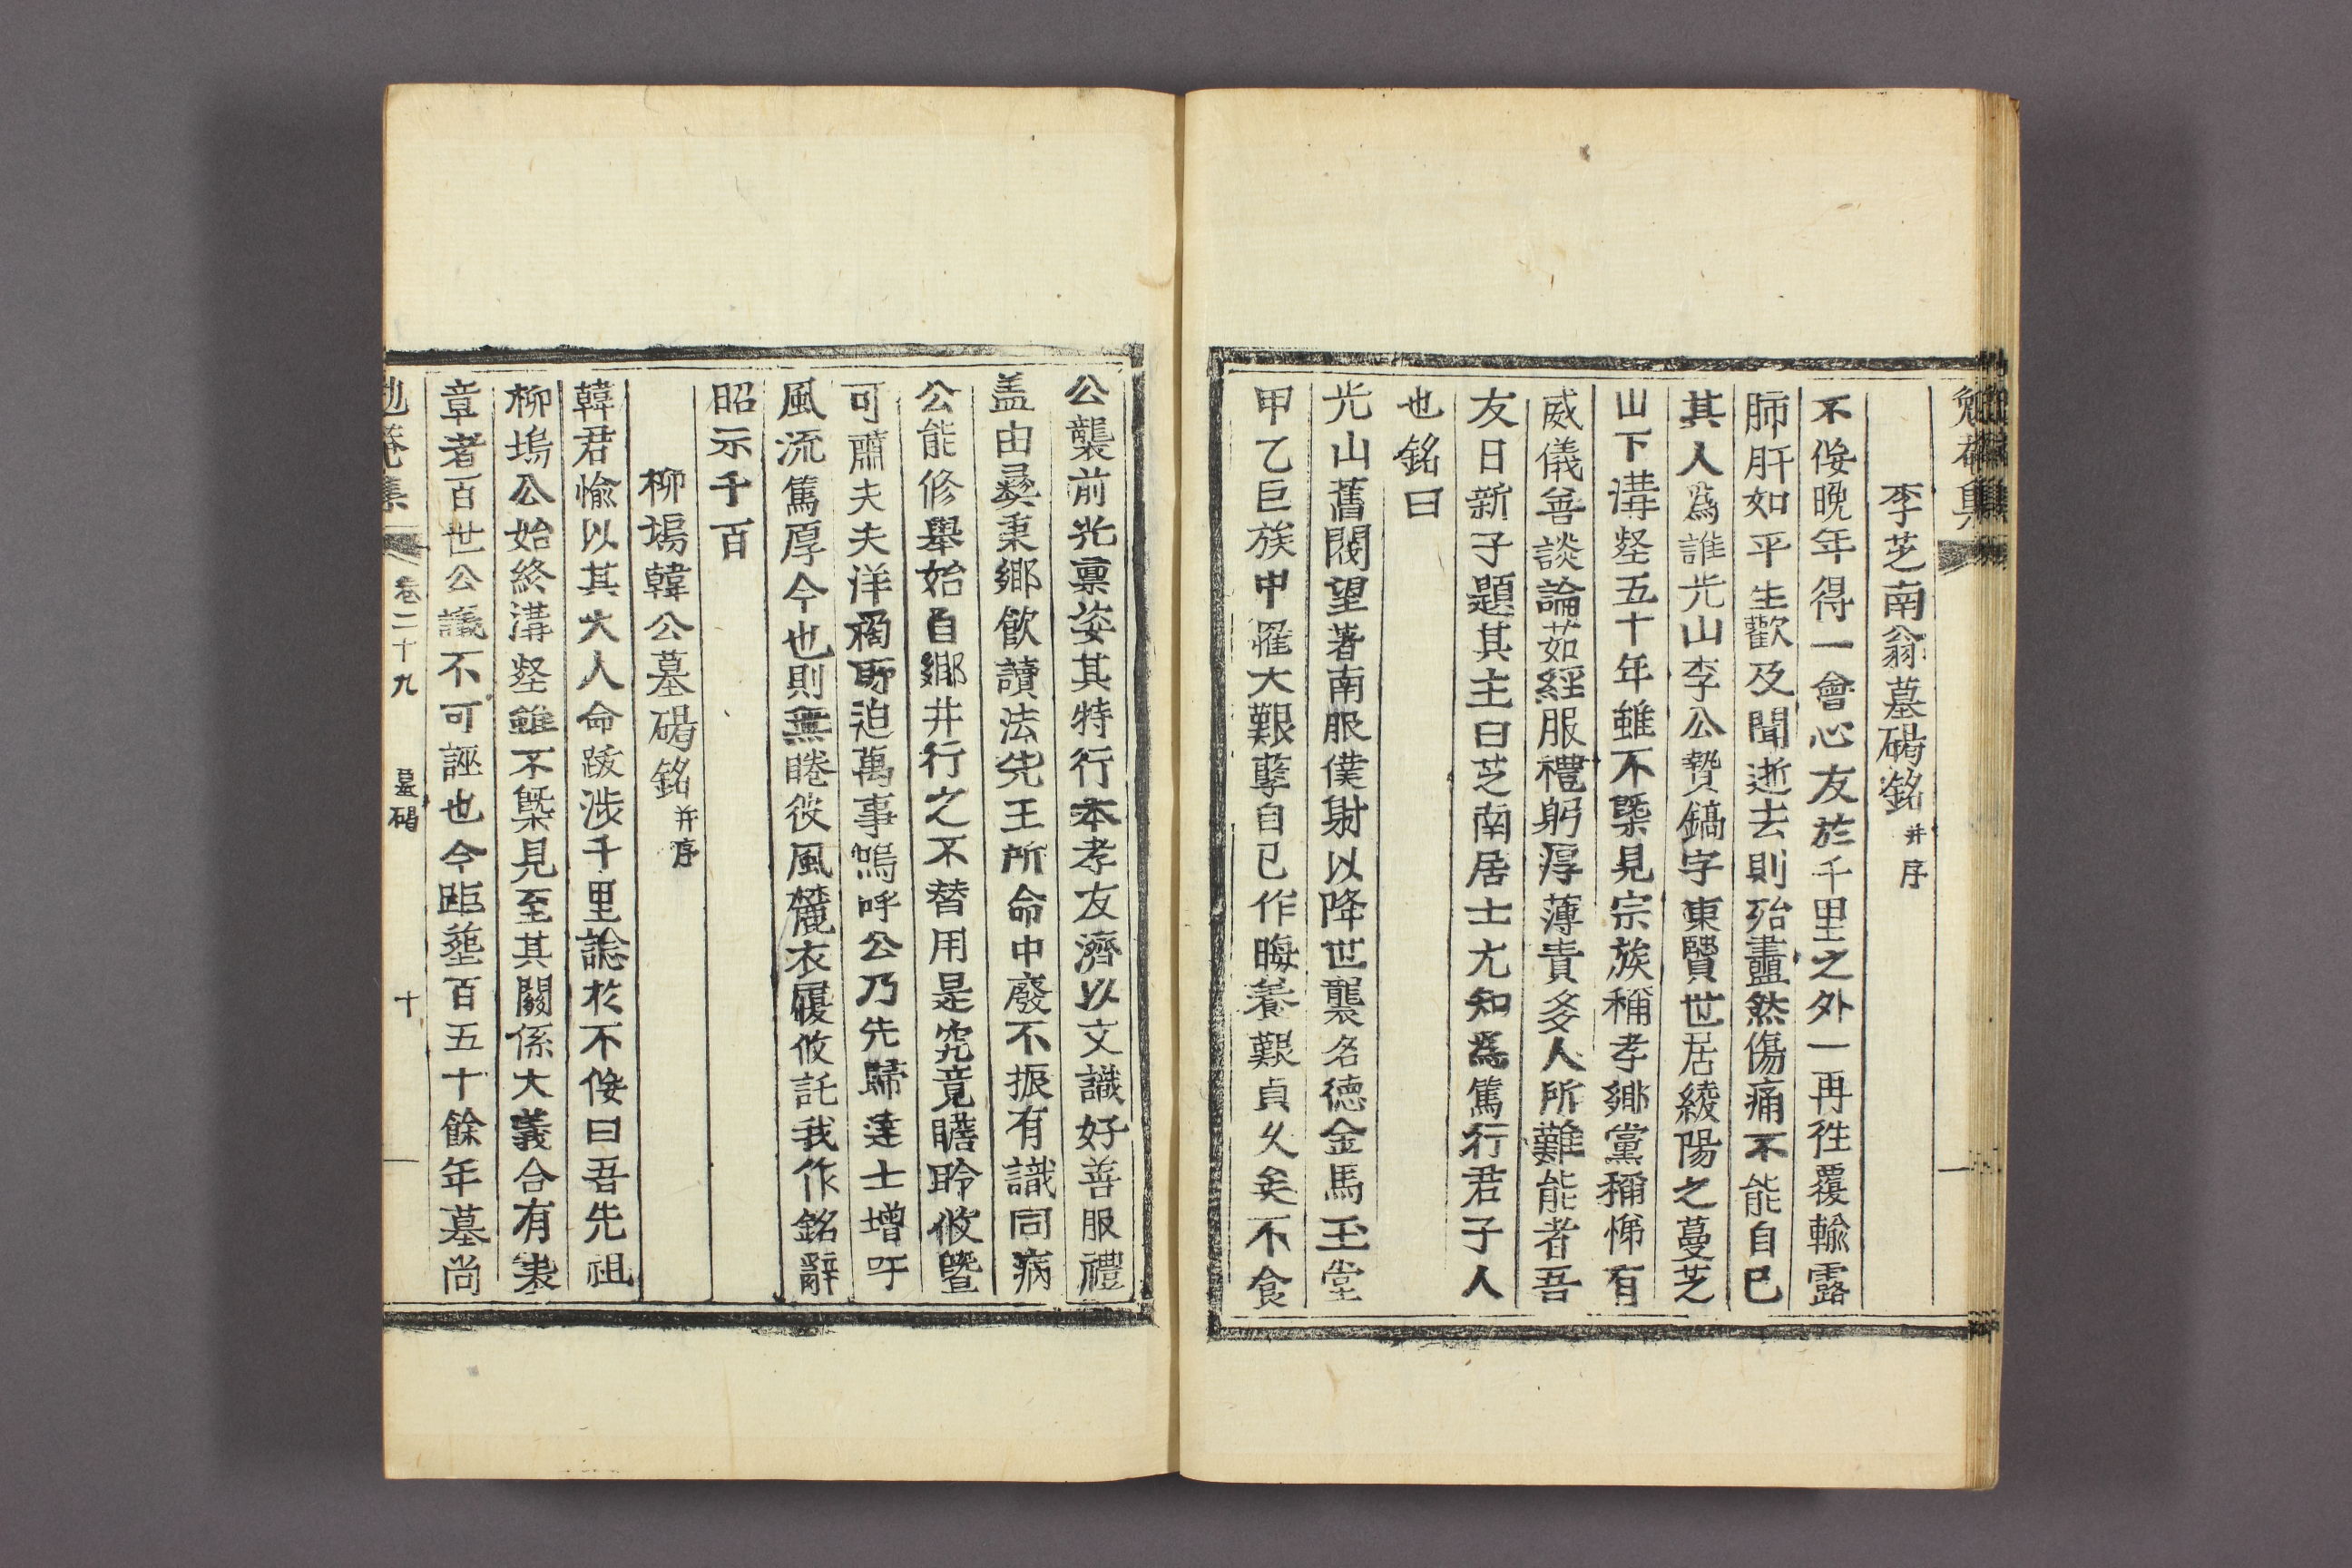 李芝南翁墓碣銘 并序
不佞晚年得一會心友於千里之外一再徃覆輸露
肺肝如平生歡及聞逝去則殆盡然傷痛不能自已
其人爲誰光山李公贄鎬字東贒世居綾陽之蔓芝
山下溝壑五十年雖不槩見宗族稱孝鄕黨稱悌有
威儀善談論茹經服禮躬厚薄責多人所難能者吾
友日新子題其主曰芝南居士尤知爲篤行君子人
也銘曰
光山舊閥望著南服僕射以降世襲名德金馬玉堂
甲乙巨族中罹大艱孽自已作晦養艱貞久矣不食
公襲前光禀姿其特行本孝友濟以文識好善服禮
盖由彛秉鄕飮讀法先王所命中廢不振有識同病
公能修舉始自鄕井行之不替用是究竟瞻聆攸曁
可肅夫夫洋禍所迫萬事嗚呼公乃先歸達士增吁
風流篤厚今也則無睠彼風麓衣履攸託我作銘辭
昭示千百
柳塢韓公墓碣銘 并序
韓君愉以其大人命跋涉千里諗於不佞曰吾先祖
柳塢公始終溝壑雖不槩見至其關係大義合有表
章者百世公議不可誣也今距葬百五十餘年墓尚
勉菴集 卷二十九 墓碣 十